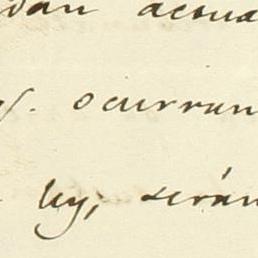 dan actua
. ocurran
ley, serán